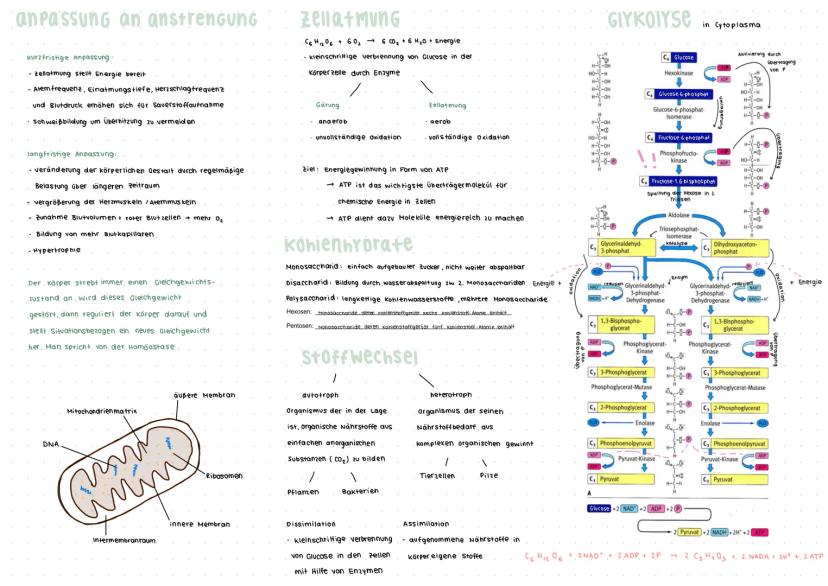 anpassung an anstrengung
kurzfristige Anpassung:
- Zellatmung stellt Energie bereit
- Atemfrequenz, Einatmungstiefe, Herzschlagfrequenz
und Blutdruck erhöhen sich für Sauerstoffaufnahme
- Schweißbildung um Überhitzung zu vermeiden
langfristige Anpassung:
- Veränderung der körperlichen Gestalt durch regelmäßige
Belastung über längeren Zeitraum
- Vergrößerung der Herzmuskeln / Atemmuskeln
- Zunahme Blutvolumen + roter Blutzellen → mehr O₂
- Bildung von mehr Blutkapillaren
- Hypertrophie
Der Körper strebt immer einen Gleichgewichts-
zustand an. Wird dieses Gleichgewicht
gestört, dann reguliert der Körper darauf und
stellt situationsbezogen ein neues Gleichgewicht
her. Man spricht von der Homöostase.
äußere Membran
Mitochondrienmatrix
DNA
Ribosomen
innere Membran
Intermembranraum
Zellatmung
C₆H₁₂O₆ + 6O₂ → 6CO₂ + 6H₂O + Energie
- kleinschrittige Verbrennung von Glucose in der
Körperzelle durch Enzyme
Gärung
- anaerob
- unvollständige Oxidation
Zellatmung
- aerob
- vollständige Oxidation
Ziel: Energiegewinnung in Form von ATP
→ ATP ist das wichtigste Überträgermolekül für
chemische Energie in Zellen
→ ATP dient dazu Moleküle energiereich zu machen
Kohlenhydrate
Monosaccharid: einfach aufgebauter Zucker, nicht weiter abspaltbar
Disaccharid: Bildung durch Wasserabspaltung zw 2. Monosacchariden
Polysaccharid: langkettige Kohlenwasserstoffe, mehrere Monosaccharide
Hexosen: Monosaccharide deren Kohlenstoffgerüst sechs Kohlenstoff-Atome enthält
Pentosen: Monosaccharide deren Kohlenstoffgerüst fünf Kohlenstoff-Atome enthält
Stoffwechsel
autotroph
Organismus der in der Lage
ist, organische Nährstoffe aus
einfachen anorganischen
Substanzen (CO₂) zu bilden
Pflanzen
Bakterien
heterotroph
Organismus der seinen
Nährstoffbedarf aus
komplexen organischen gewinnt
Tierzellen
Pilze
Dissimilation
- kleinschrittige Verbrennung
von Glucose in den Zellen
mit Hilfe von Enzymen
Assimilation
- aufgenommene Nährstoffe in
körpereigene Stoffe
GLYKOLYSE in Cytoplasma
C₆ Glucose
Aktivierung durch
Übertragung
von P
Hexokinase
ATP
ADP
C₆ Glucose-6-phosphat
Glucose-6-phosphat-
Isomerase
C₆ Fructose-6-phosphat
Phosphofructo-
kinase
ATP
ADP
Übertragung
!!
C₆ Fructose-1,6-bisphosphat
Spaltung der Hexose in 2
Triosen
Aldolase
Triosephosphat-
Isomerase
C₃ Glycerinaldehyd-
3-phosphat
C₃ Dihydroxyaceton-
phosphat
Energie +
+ Energie
Oxidation
Oxidation
reduziert
Enzym
reduziert
NAD⁺
NADH + H⁺
Glycerinaldehyd-
3-phosphat-
Dehydrogenase
Glycerinaldehyd-
3-phosphat-
Dehydrogenase
NAD⁺
NADH + H⁺
C₃ 1,3-Bisphospho-
glycerat
C₃ 1,3-Bisphospho-
glycerat
Übertragung
von P
ADP
ATP
Phosphoglycerat-
Kinase
Phosphoglycerat-
Kinase
ADP
ATP
Übertragung
von P
C₃ 3-Phosphoglycerat
C₃ 3-Phosphoglycerat
Phosphoglycerat-Mutase
Phosphoglycerat-Mutase
C₃ 2-Phosphoglycerat
C₃ 2-Phosphoglycerat
H₂O
Enolase
Enolase
H₂O
C₃ Phosphoenolpyruvat
C₃ Phosphoenolpyruvat
ADP
ATP
Pyruvat-Kinase
Pyruvat-Kinase
ADP
ATP
C₃ Pyruvat
C₃ Pyruvat
A
Glucose + 2 NAD⁺ + 2 ADP + 2 P
2 Pyruvat + 2 NADH + 2H⁺ + 2 ATP
C₆H₁₂O₆ + 2NAD⁺ + 2ADP + 2P → 2 C₃H₄O₃ + 2 NADH + 2H⁺ + 2 ATP